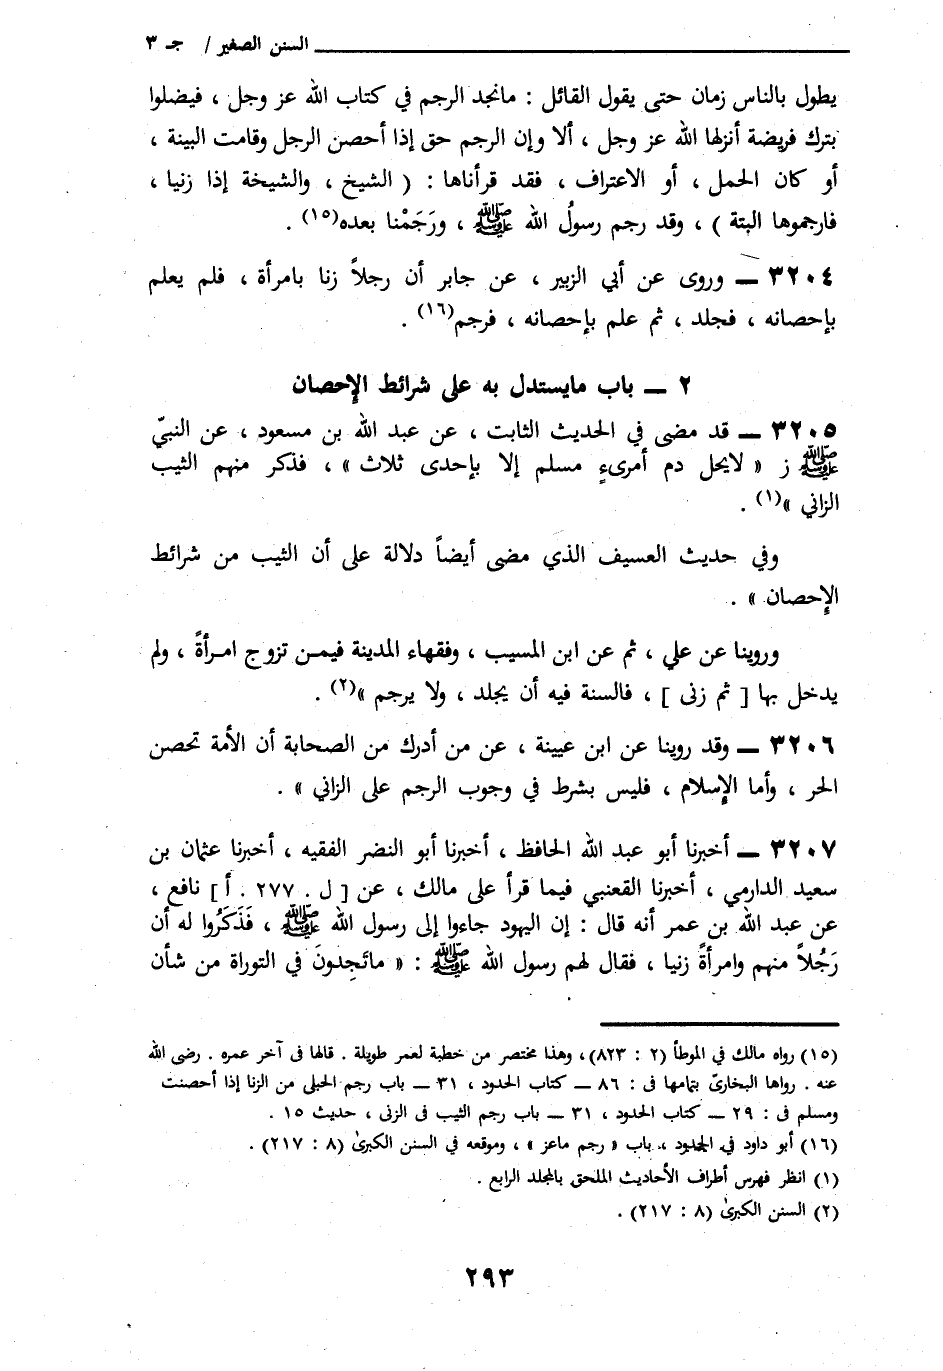 السنن الصغير / جـ ٣
يطول بالناس زمان حتى يقول القائل : مانجد الرجم في كتاب الله عز وجل ، فيضلوا
بترك فريضة أنزلها الله عز وجل ، ألا وإن الرجم حق إذا أحصن الرجل وقامت البينة ،
أو كان الحمل ، أو الاعتراف ، فقد قرأناها : ( الشيخ ، والشيخة إذا زنيا ،
فارجموها البتة ) ، وقد رجم رسولُ الله ﷺ ، ورَجَمْنا بعده(١٥) .
٣٢٠٤ ــ وروى عن أبي الزبير ، عن جابر أن رجلاً زنا بامرأة ، فلم يعلم
بإحصانه ، فجلد ، ثم علم بإحصانه ، فرجم(١٦) .
٢ ــ باب مايستدل به على شرائط الإحصان
٣٢٠٥ ــ قد مضى في الحديث الثابت ، عن عبد الله بن مسعود ، عن النبيّ
ﷺ ز « لايحل دم أمرىءٍ مسلم إلا بإحدى ثلاث » ، فذكر منهم الثيب
الزاني »(١) .
وفي حديث العسيف الذي مضى أيضاً دلالة على أن الثيب من شرائط
الإحصان » .
وروينا عن علي ، ثم عن ابن المسيب ، وفقهاء المدينة فيمـن تزوج امـرأةً ، ولم
يدخل بها [ ثم زنى ] ، فالسنة فيه أن يجلد ، ولا يرجم »(٢) .
٣٢٠٦ ــ وقد روينا عن ابن عيينة ، عن من أدرك من الصحابة أن الأمة تحصن
الحر ، وأما الإسلام ، فليس بشرط في وجوب الرجم على الزاني » .
٣٢٠٧ ــ أخبرنا أبو عبد الله الحافظ ، أخبرنا أبو النضر الفقيه ، أخبرنا عثمان بن
سعيد الدارمي ، أخبرنا القعنبي فيما قرأ على مالك ، عن [ ل . ٢٧٧ . أ ] نافع ،
عن عبد الله بن عمر أنه قال : إن اليهود جاءوا إلى رسول الله ﷺ ، فَذَكَرُوا له أن
رَجُلاً منهم وامرأةً زنيا ، فقال لهم رسول الله ﷺ : « ماتَجِدونَ في التوراة من شأن
(١٥) رواه مالك في الموطأ (٢ : ٨٢٣) ، وهذا مختصر من خطبة لعمر طويلة . قالها فى آخر عمره . رضى الله
عنه . رواها البخاريّ بتمامها فى : ٨٦ ــ كتاب الحدود ، ٣١ ــ باب رجم الحبلى من الزنا إذا أحصنت
ومسلم فى : ٢٩ ــ كتاب الحدود ، ٣١ ــ باب رجم الثيب فى الزنى ، حديث ١٥ .
(١٦) أبو داود في الحدود ، باب « رجم ماعز » ، وموقعه في السنن الكبرىٰ (٨ : ٢١٧) .
(١) انظر فهرس أطراف الأحاديث الملحق بالمجلد الرابع .
(٢) السنن الكبرىٰ (٨ : ٢١٧) .
٢٩٣